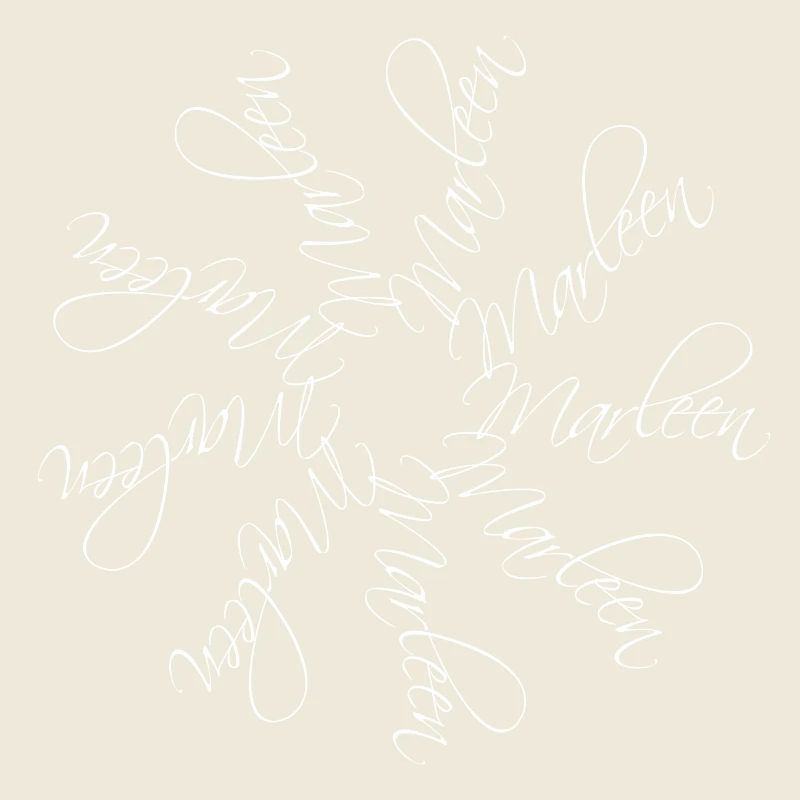 Marleen
Marleen
Marleen
Marleen
Marleen
Marleen
Marleen
Marleen
Marleen